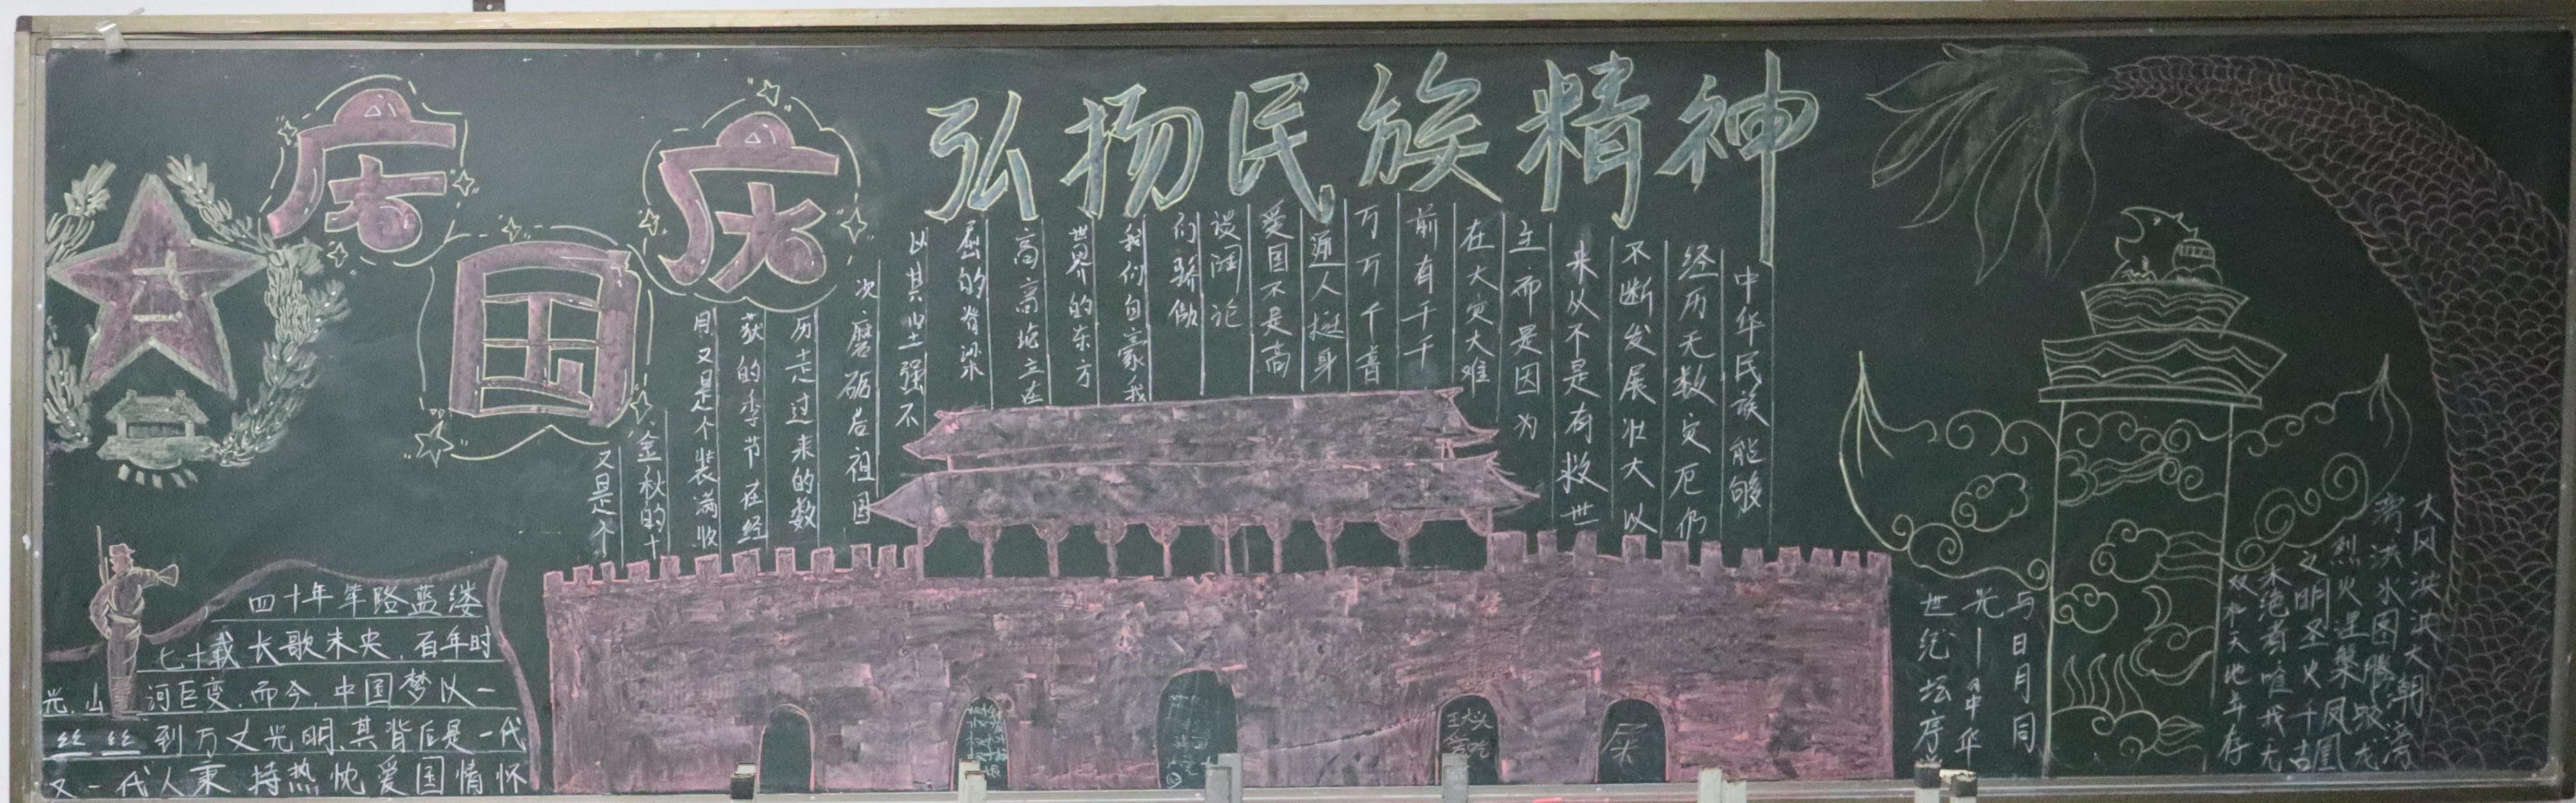 庆国庆
弘扬民族精神
又是个
金秋的十
月又是个装满收
获的季节在经
历走过来的数
次磨砺后祖国
以其坚强不
屈的脊梁
高高屹立在
世界的东方
我们自豪我
们骄傲
中华民族能够
经历无数灾厄仍
不断发展壮大以
来从不是有救世
主而是因为
在大灾大难
前有千千
万万个普
通人挺身
爱国不是高
谈阔论
四十年筚路蓝缕
七十载长歌未央，百年时
光，山河巨变，而今，中国梦以一
丝丝到万丈光明，其背后是一代
又一代人秉持热忱爱国情怀
大风泱泱大潮滂
滂洪水图腾蛟龙
烈火涅槃凤凰
文明圣火千古
未绝者唯我无
双和天地并存
与日月同
光—《中华
世纪坛序》